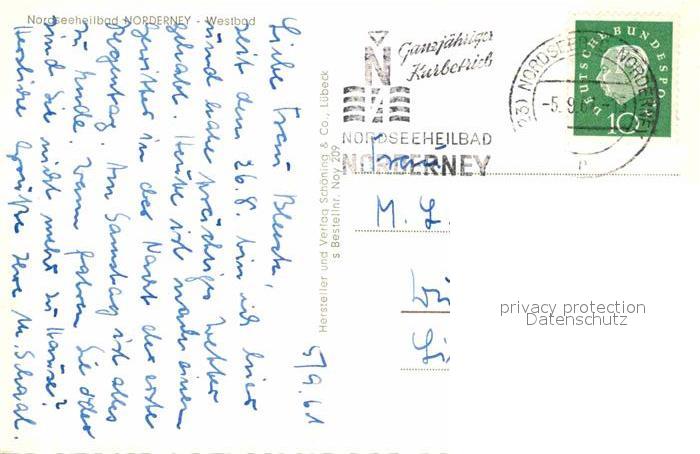 Nordseeheilbad NORDERNEY - Westbad
5/9.61
Liebe Frau
seit dem 26.8. bin ich hier
und habe prächtiges Wetter
gehabt. Heute ist nach einem
Gewitter in der Nacht der erste
Regentag. Am Samstag ist alles
zu Ende. Wann fahren Sie oder
sind Sie nicht mehr zu Hause?
Herzliche Grüße Ihre M. Schaal.
Hersteller und Verlag Schöning & Co., Lübeck
s Bestellnr. Noy 209
Ganzjähriger
Kurbetrieb
N
NORDSEEHEILBAD
NORDERNEY
(23) NORDSEEBAD NORDERNEY
-5.9.61
DEUTSCHE BUNDESPOST
10
Frau
M. L.
privacy protection
Datenschutz